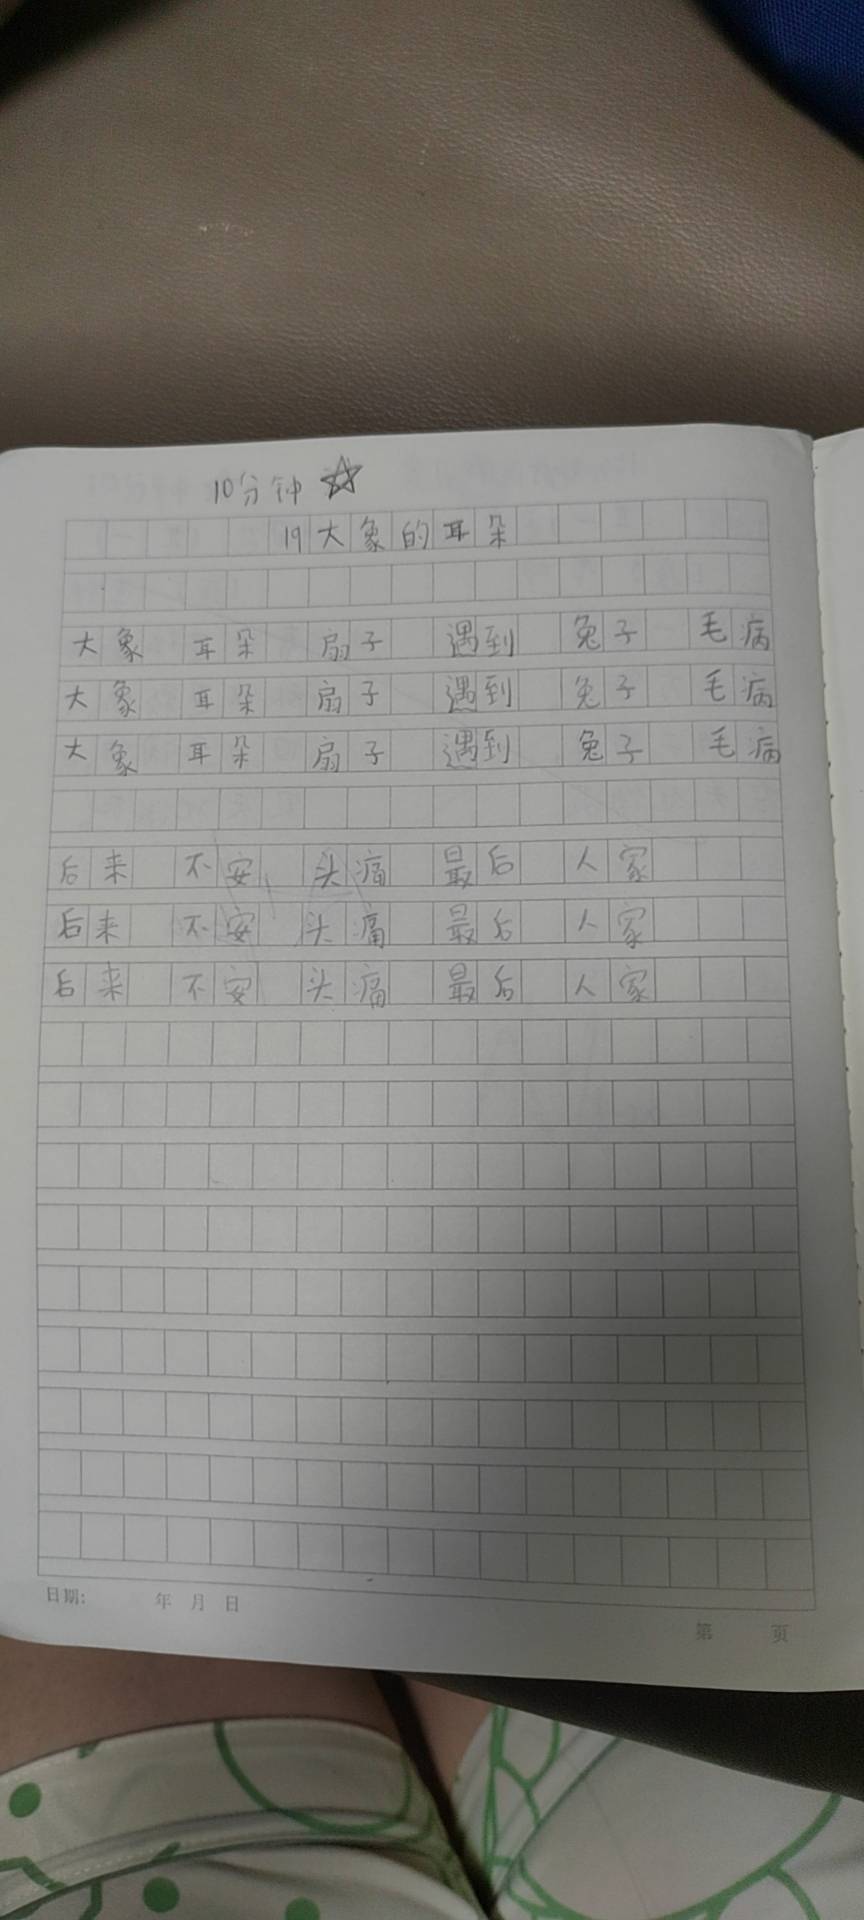 10分钟 ☆
19大象的耳朵
大象 耳朵 扇子 遇到 兔子 毛病
大象 耳朵 扇子 遇到 兔子 毛病
大象 耳朵 扇子 遇到 兔子 毛病
后来 不安 头痛 最后 人家
后来 不安 头痛 最后 人家
后来 不安 头痛 最后 人家
日期: 年 月 日
第 页